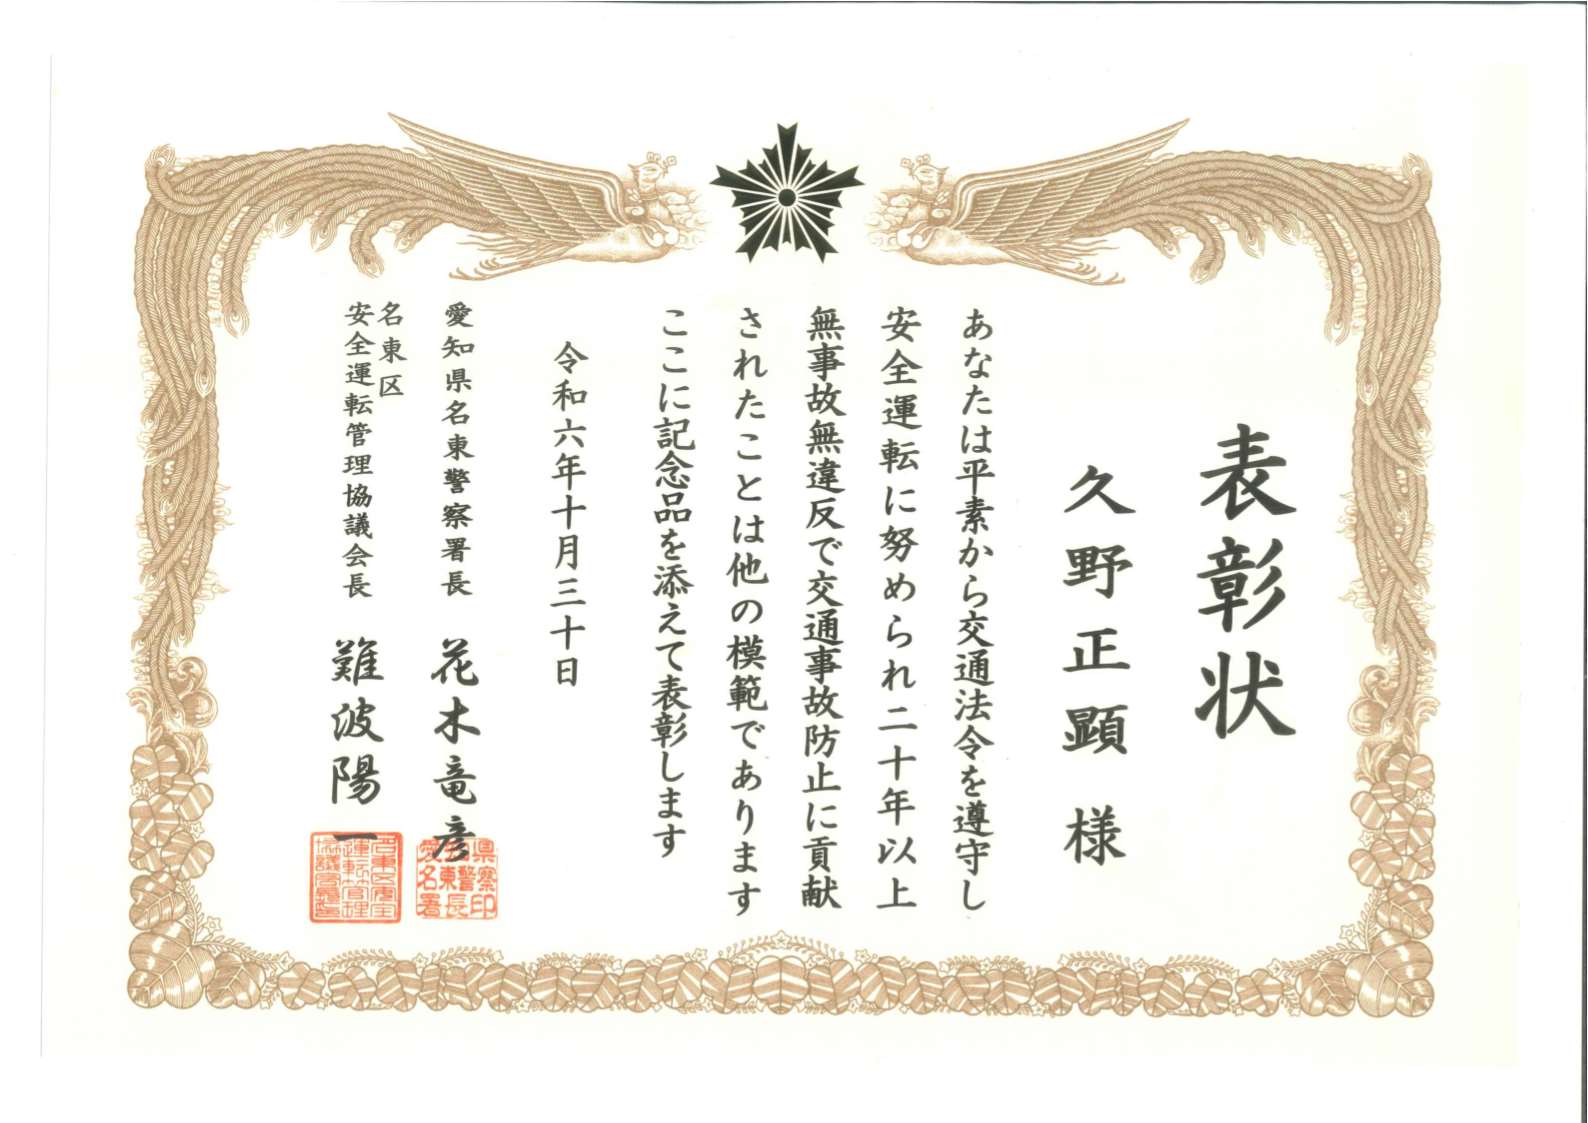 表彰状
久野正顕 様
あなたは平素から交通法令を遵守し
安全運転に努められ二十年以上
無事故無違反で交通事故防止に貢献
されたことは他の模範であります
ここに記念品を添えて表彰します
令和六年十月三十日
愛知県名東警察署長 花木竜彦
名東区
安全運転管理協議会長 難波陽一